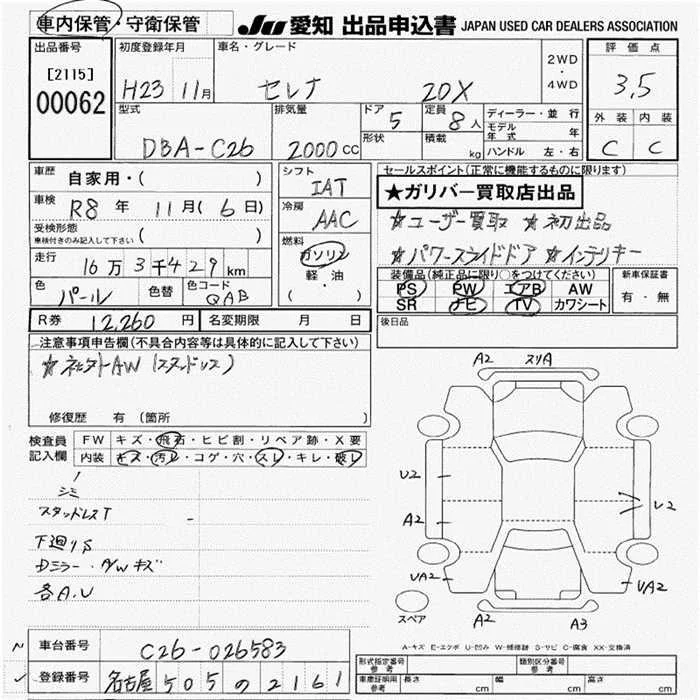 車内保管・守衛保管 JU 愛知 出品申込書 JAPAN USED CAR DEALERS ASSOCIATION
出品番号 [2115] 00062
初度登録年月 H23 11月
車名・グレード セレナ 20X
2WD・4WD
評価点 3.5
外装 内装
C C
型式 DBA-C26
排気量 2000cc
ドア 5
形状
定員 8人
積載 kg
ディーラー・並行
モデル年式 年
ハンドル 左・右
車歴 自家用・( )
車検 R8年 11月(6日)
受検形態 車検付きのみ記入して下さい ( )
走行 16万3千429km
色 パール 色替 色コード QAB
シフト IAT
冷房 AAC
燃料 ガソリン 軽・油 (・)
セールスポイント(正常に機能するものに限ります)
★ガリバー買取店出品
★ユーザー買取 ★初出品
★パワースライドドア ★インテリキー
装備品(純正品に限り○をつけてください)
PS PW エアB AW
SR ナビ TV カワシート
新車保証書 有・無
R券 12,260円 名変期限 月 日
後日品
注意事項申告欄(不具合内容等は具体的に記入して下さい)
★社外AW(スタッドレス)
修復歴 有(箇所 )
検査員記入欄
FW キズ・飛石・ヒビ割・リペア跡・X要
内装 キズ・汚レ・コゲ・穴・スレ・キレ・破レ
シミ
スタッドレスT
下廻りS
Dミラー・A/Wキズ
各A.U
A2 スリA
U2
A2
U2
UA2
UA2
スペア
A2 A3
A-キズ E-エクボ U-凹み W-補修跡 S-サビ C-腐食 XX-交換済
車台番号 C26-026583
登録番号 名古屋 505 の 2161
型式指定番号 参考
類別区分番号 参考
車庫証明用 参考 長さ cm 幅 cm 高さ cm